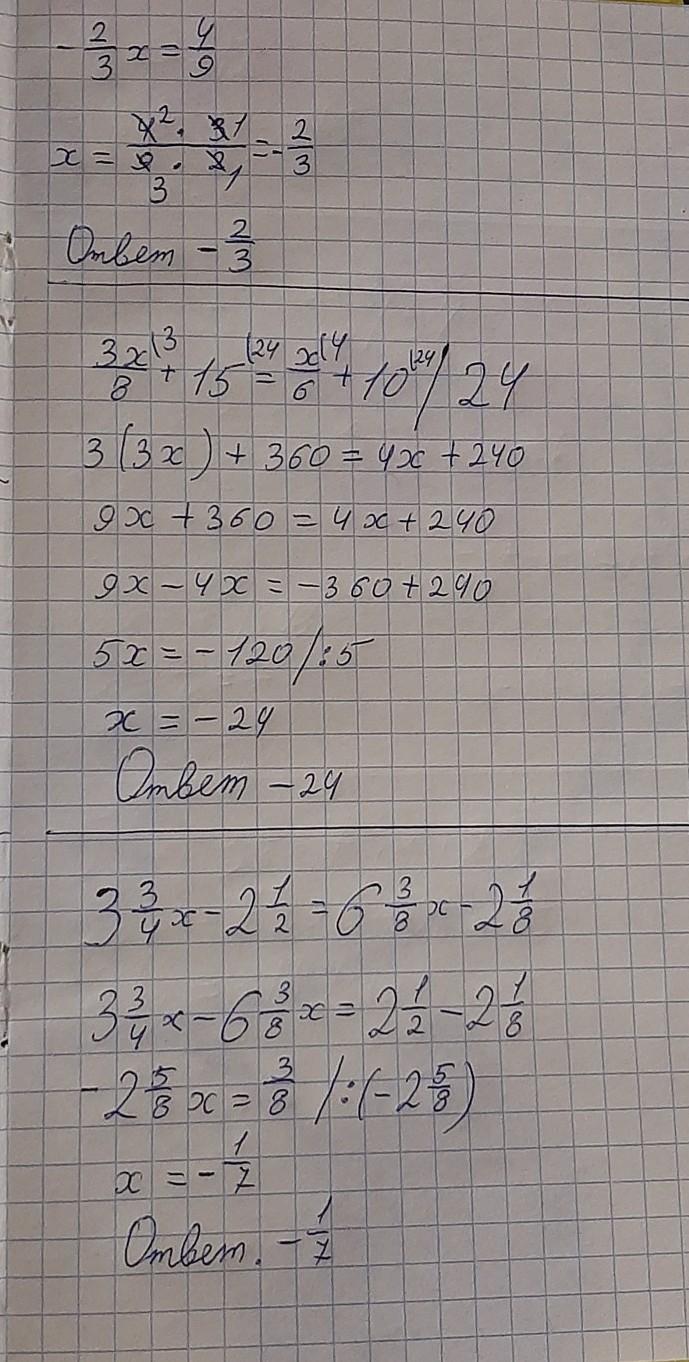 -2/3 x = 4/9
x = 4² · 3 1 / 9 3 · 2 1 = -2/3
Ответ -2/3
3x/8 \3 + 15 \24 = x/6 \4 + 10 \24 / 24
3(3x) + 360 = 4x + 240
9x + 360 = 4x + 240
9x - 4x = -360 + 240
5x = -120 /:5
x = -24
Ответ -24
3 3/4 x - 2 1/2 = 6 3/8 x - 2 1/8
3 3/4 x - 6 3/8 x = 2 1/2 - 2 1/8
-2 5/8 x = 3/8 /:(-2 5/8)
x = -1/7
Ответ. -1/7